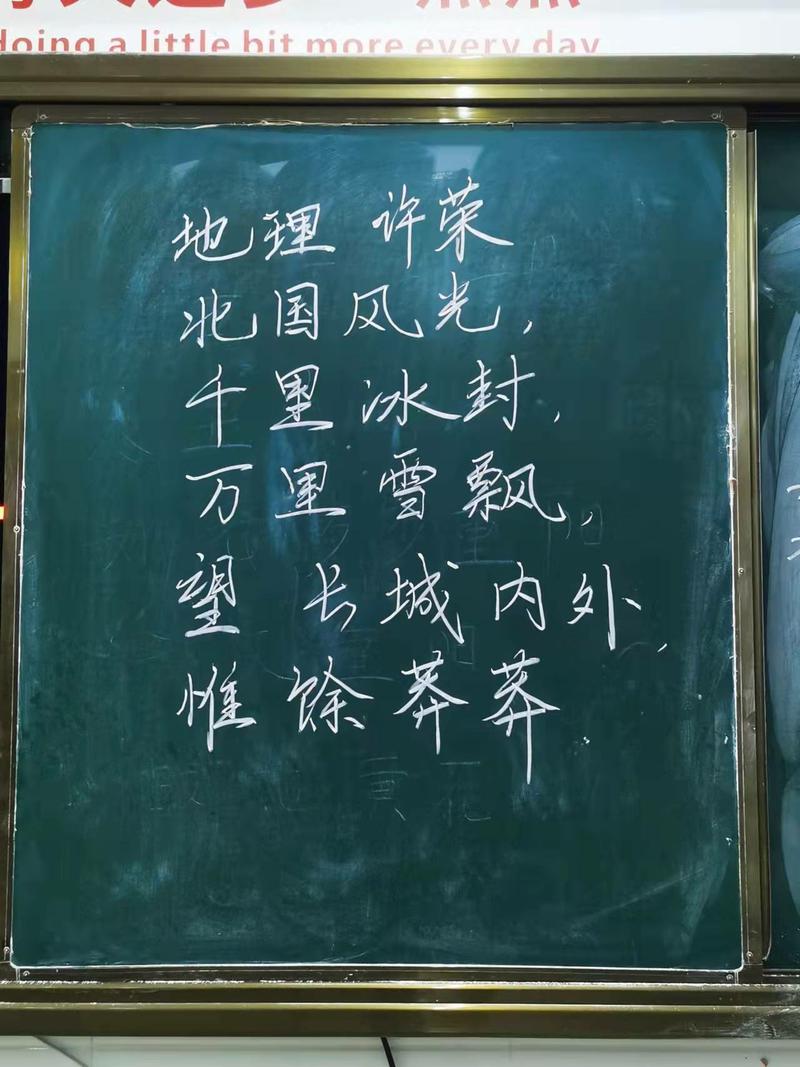 doing a little bit more every day
地理 许荣
北国风光,
千里冰封,
万里雪飘,
望 长城内外,
惟馀莽莽